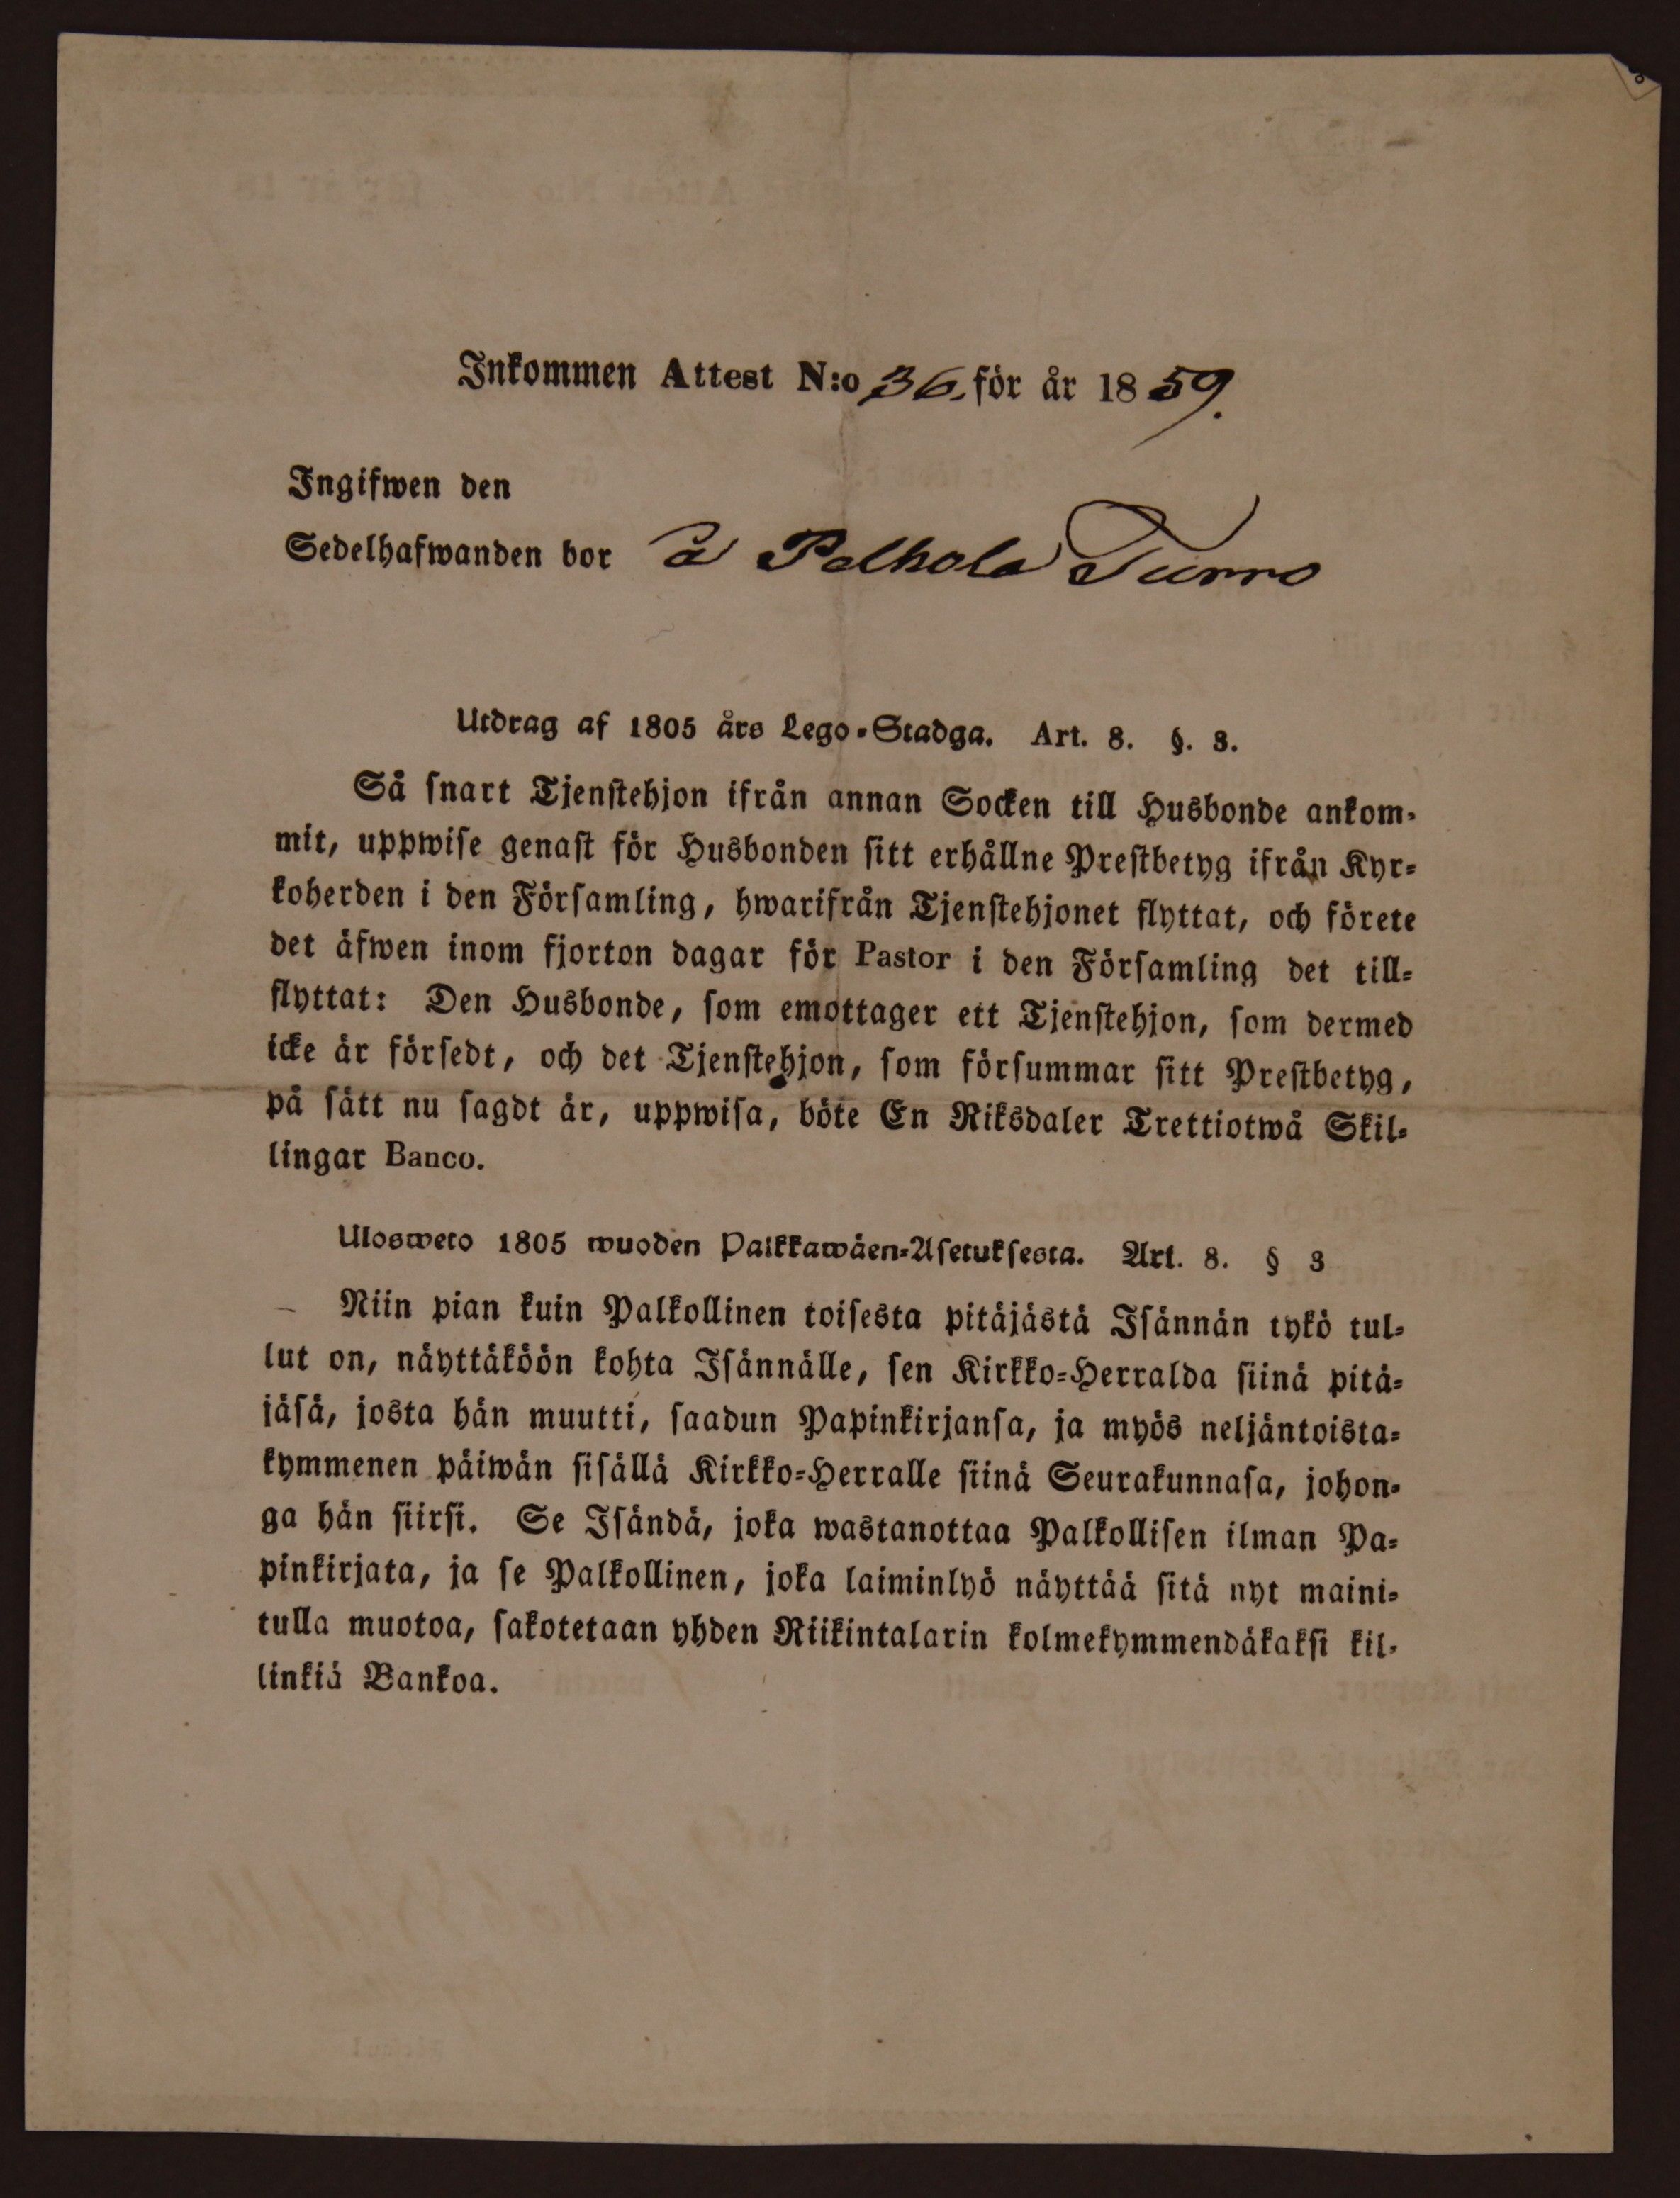 Inkommen Attest N:o 36. för år 1859.
Ingifwen den
Sedelhafwanden bor å Pelkola Turro
Utdrag af 1805 års Lego-Stadga. Art. 8. §. 3.
Så snart Tjenstehjon ifrån annan Socken till Husbonde ankom-
mit, uppwise genast för Husbonden sitt erhållne Prestbetyg ifrån Kyr-
koherden i den Församling, hwarifrån Tjenstehjonet flyttat, och förete
det äfwen inom fjorton dagar för Pastor i den Församling det till-
flyttat: Den Husbonde, som emottager ett Tjenstehjon, som dermed
icke är försedt, och det Tjenstehjon, som försummar sitt Prestbetyg,
på sätt nu sagdt är, uppwisa, böte En Riksdaler Trettiotwå Skil-
lingar Banco.
Ulosweto 1805 wuoden Palkkawäen-Asetuksesta. Art. 8. § 3
Niin pian kuin Palkollinen toisesta pitäjästä Isännän tykö tul-
lut on, näyttäköön kohta Isännälle, sen Kirkko-Herralda siinä pitä-
jäsä, josta hän muutti, saadun Papinkirjansa, ja myös neljäntoista-
kymmenen päiwän sisällä Kirkko-Herralle siinä Seurakunnasa, johon-
ga hän siirsi. Se Isändä, joka wastanottaa Palkollisen ilman Pa-
pinkirjata, ja se Palkollinen, joka laiminlyö näyttää sitä nyt maini-
tulla muotoa, sakotetaan yhden Riikintalarin kolmekymmendäkaksi kil-
linkiä Bankoa.